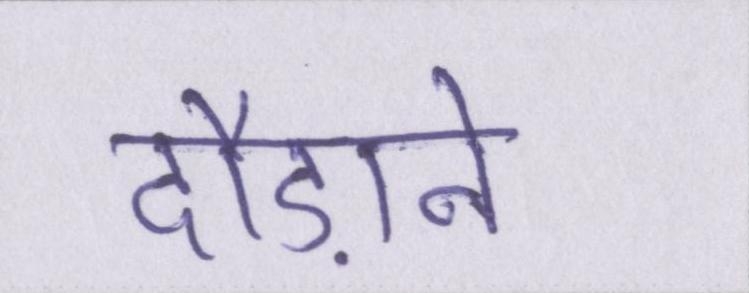 दौड़ाने